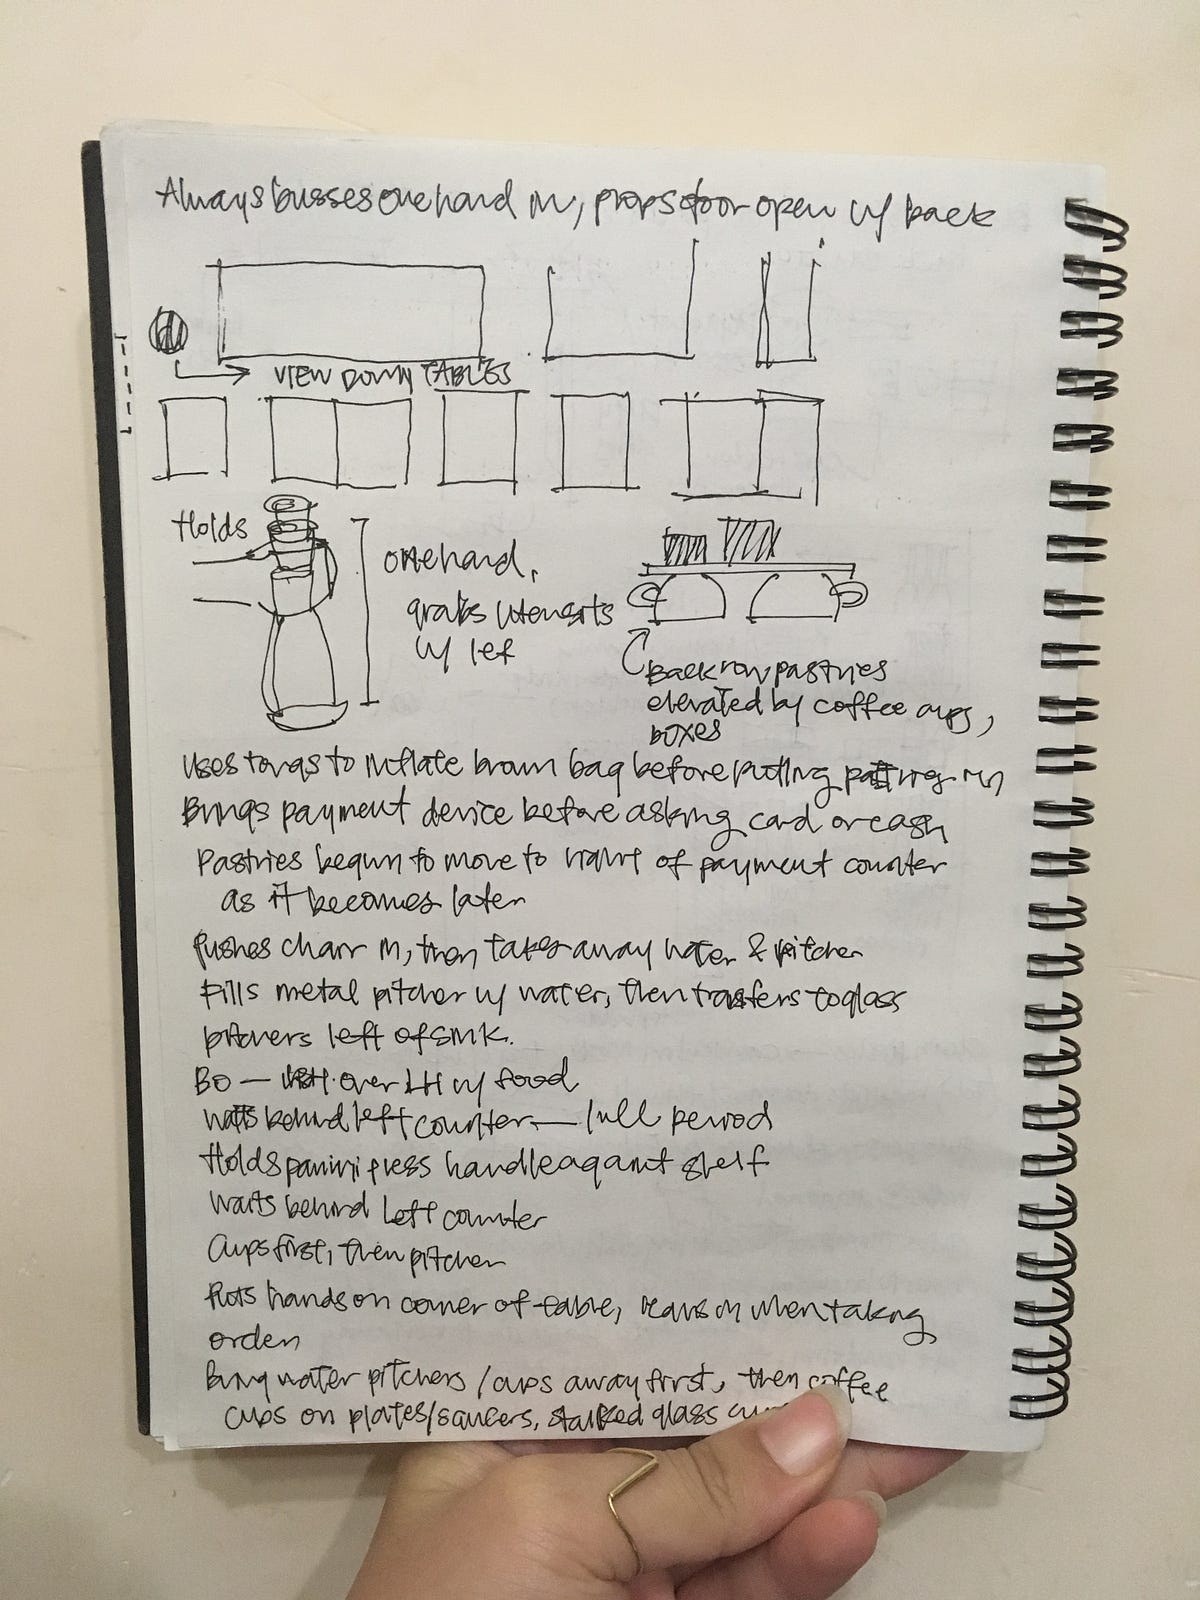 Always busses one hand in, props door open w/ back
VIEW DOWN TABLES
Holds
one hand,
grabs utensils
w/ lef
Back row pastries
elevated by coffee cups,
boxes
Uses tongs to inflate brown bag before putting pastries in
Brings payment device before asking card or cash
Pastries begun to move to right of payment counter
as it becomes later
Pushes chair in, then takes away water & pitcher
Fills metal pitcher w/ water, then transfers to glass
pitchers left of sink.
BO — over LH w/ food
Waits behind left counter — lull period
Holds panini press handle against shelf
Waits behind left counter
Cups first, then pitcher
Puts hands on corner of table, leans in when taking
order
Bring water pitchers / cups away first, then coffee
cups on plates/saucers, stacked glass